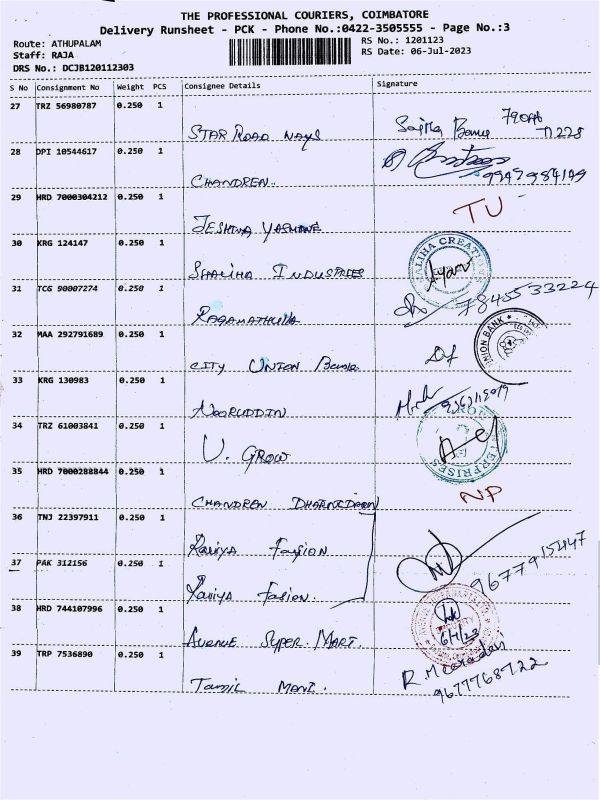 THE PROFESSIONAL COURIERS, COIMBATORE
Delivery Runsheet - PCK - Phone No.:0422-3505555 - Page No.:3
Route: ATHUPALAM
RS No.: 1201123
Staff: RAJA
RS Date: 06-Jul-2023
DRS No.: DCJB120112303
S No Consignment No Weight PCS Consignee Details Signature
27 TRZ 56980787 0.250 1
STAR ROAD WAYS
28 DPI 10544617 0.250 1
CHANDREN.
29 HRD 7000304212 0.250 1
JESHINA YASMINE TU
30 KRG 124147 0.250 1
SHALIHA INDUSTRIES
31 TCG 90007274 0.250 1
7845533224
32 MAA 292791689 0.250 1
CITY UNION Bank UNION BANK
33 KRG 130983 0.250 1
NOORUDDIN
34 TRZ 61003841 0.250 1
U. GROW
35 HRD 7000288844 0.250 1
CHANDREN NP
36 TNJ 22397911 0.250 1
Fasion
37 PAK 312156 0.250 1
Fasion. 9677915447
38 HRD 744107996 0.250 1
AVENUE SUPER MART. 6/7/23
39 TRP 7536890 0.250 1
TAMIL MANI. 9677768722